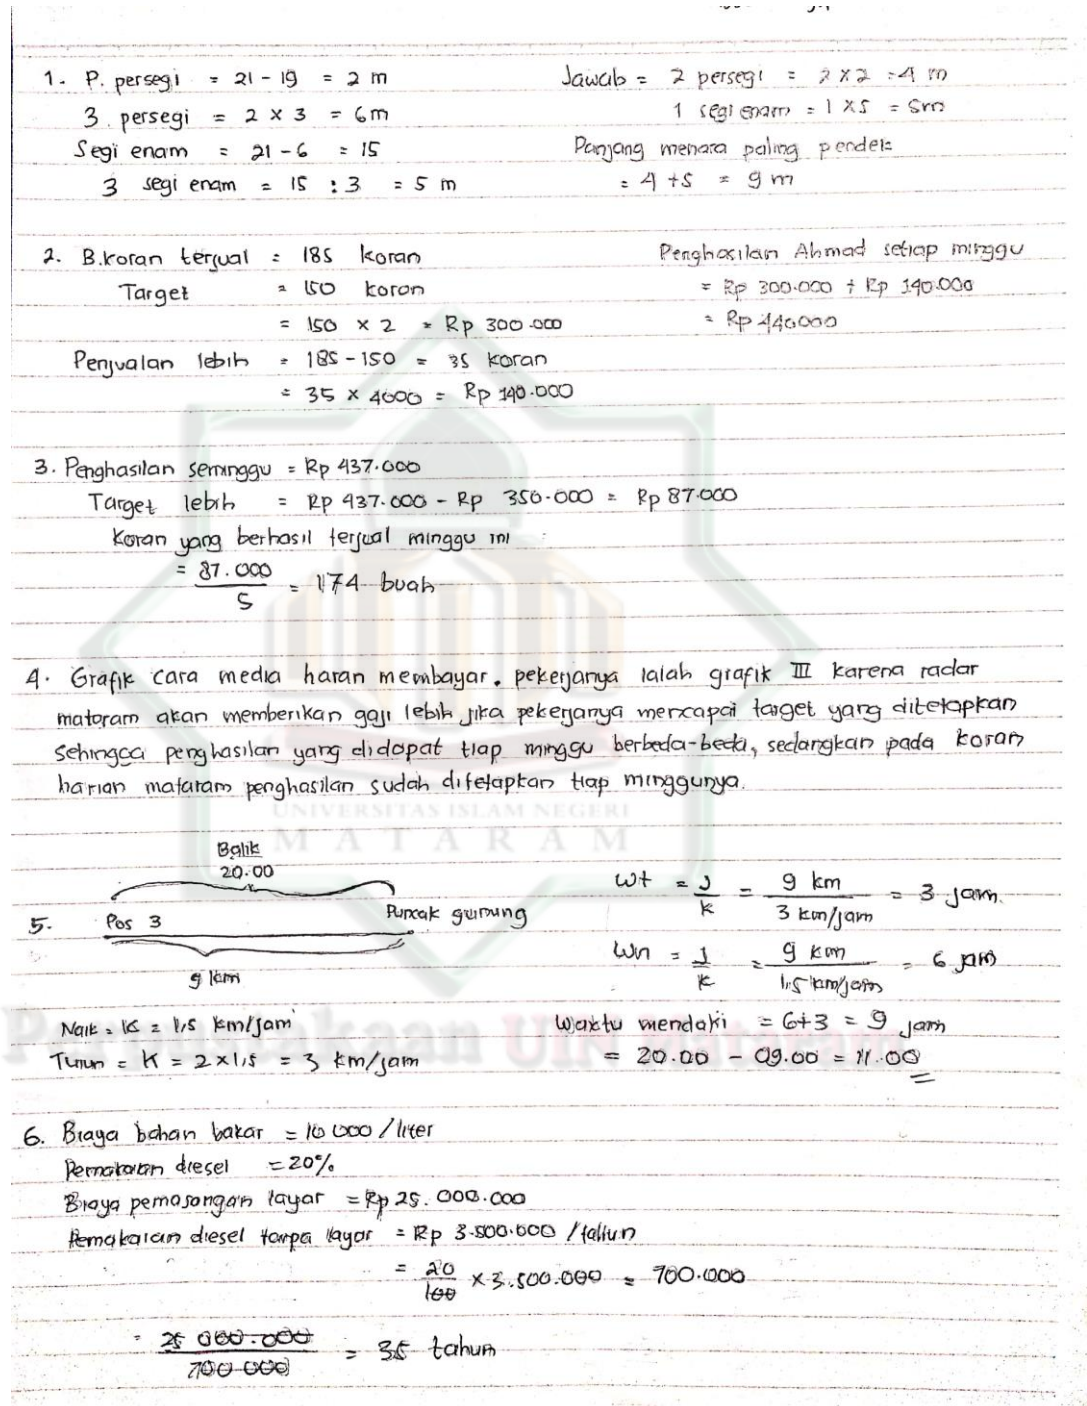 1. P. persegi = 21 - 19 = 2 m
3. persegi = 2 x 3 = 6m
Segi enam = 21 - 6 = 15
3 segi enam = 15 : 3 = 5 m
Jawab = 2 persegi = 2 x 2 = 4 m
1 segi enam = 1 x 5 = 5m
Panjang menara paling pendek =
= 4 + 5 = 9 m
2. B. koran terjual = 185 koran
Target = 150 koran
= 150 x 2 = Rp 300.000
Penjualan lebih = 185 - 150 = 35 koran
= 35 x 4000 = Rp 140.000
Penghasilan Ahmad setiap minggu
= Rp 300.000 + Rp 140.000
= Rp 440.000
3. Penghasilan seminggu = Rp 437.000
Target lebih = Rp 437.000 - Rp 350.000 = Rp 87.000
Koran yang berhasil terjual minggu ini :
= 87.000 / 5 = 174 buah
4. Grafik cara media harian membayar. pekerjanya ialah grafik III karena radar
mataram akan memberikan gaji lebih jika pekerjanya mencapai target yang ditetapkan
sehingga penghasilan yang didapat tiap minggu berbeda-beda, sedangkan pada koran
harian mataram penghasilan sudah ditetapkan tiap minggunya.
UNIVERSITAS ISLAM NEGERI
MATARAM
Balik
20.00
5. Pos 3 Puncak gunung
9 km
Naik = K = 1,5 km/jam
Turun = K = 2 x 1,5 = 3 km/jam
Wt = J/K = 9 km / 3 km/jam = 3 jam.
Wn = J/K = 9 km / 1.5 km/jam = 6 jam
Waktu mendaki = 6+3 = 9 jam
= 20.00 - 09.00 = 11.00
Perpustakaan UIN Mataram
6. Biaya bahan bakar = 10 000 / liter
Pemakaian diesel = 20%
Biaya pemasangan layar = Rp 25.000.000
Pemakaian diesel tanpa layar = Rp 3.500.000 / tahun
= 20/100 x 3.500.000 = 700.000
= 25 000.000 / 700 000 = 35 tahun